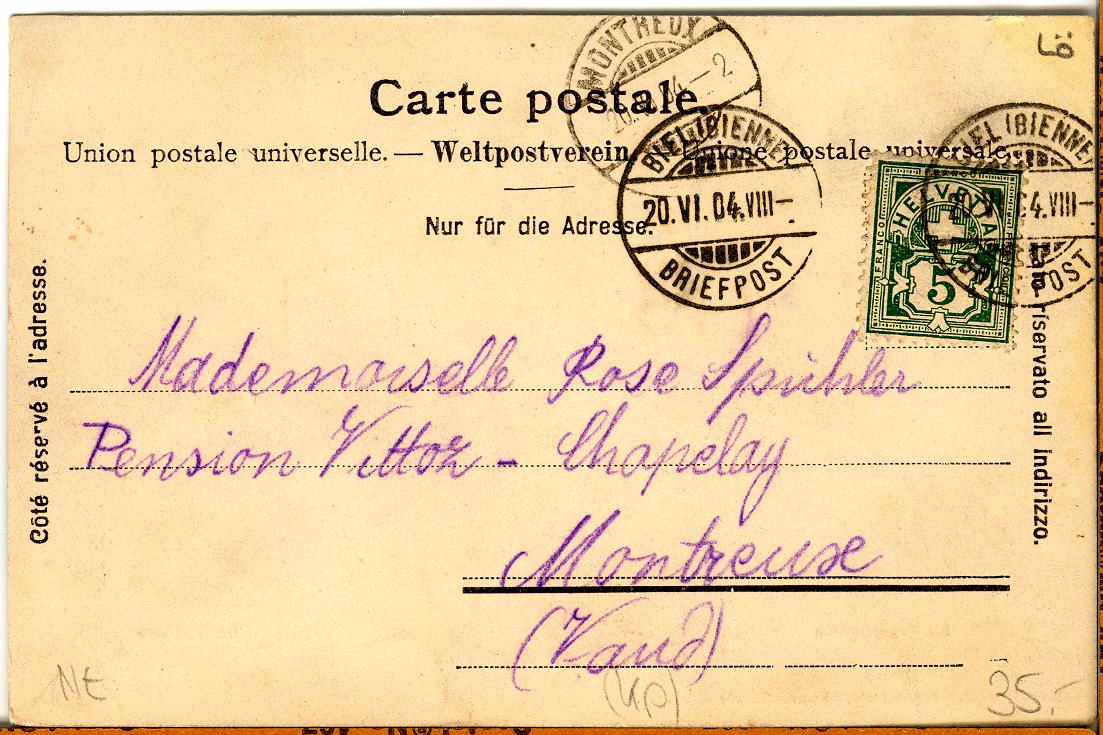 MONTREUX
Carte postale.
Union postale universelle. — Weltpostverein. — Unione postale universale.
BIEL (BIENNE)
20.VI.04.VIII–
BRIEFPOST
BIEL (BIENNE)
4.VIII–
POST
FRANCO
HELVETIA
5
Nur für die Adresse.
Côté réservé à l'adresse.
Lato riservato all indirizzo.
Mademoiselle Rose Spühler
Pension Vittoz - Chapelay
Montreux
(Vaud)
Nt
(Kp)
35.-